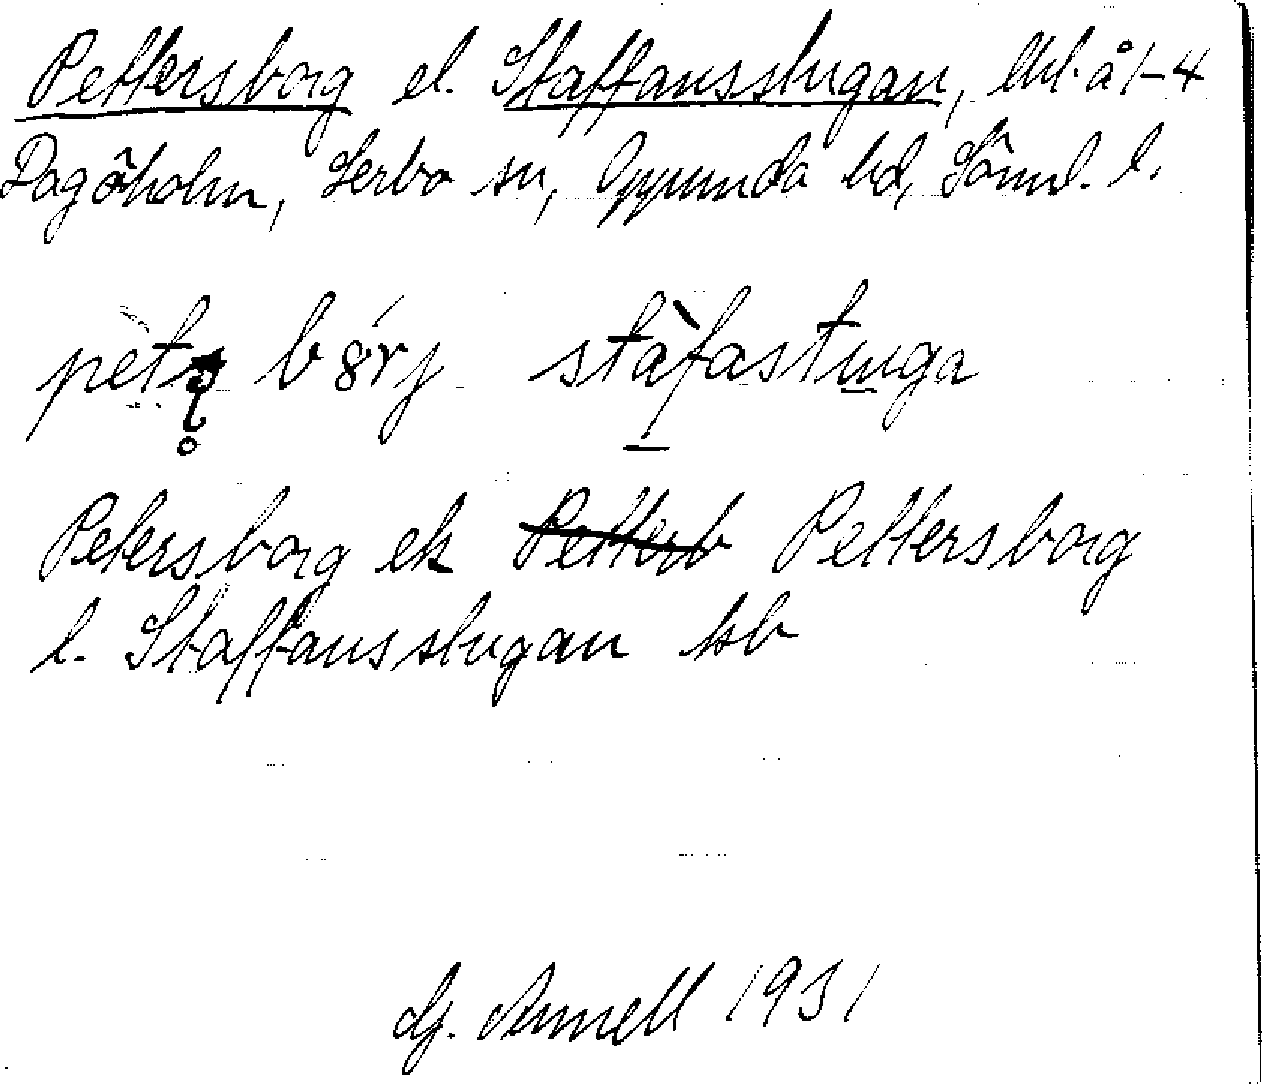 Pettersborg el. Staffansstugan, Utl. å 1-4
Dagöholm, Lerbo sn, Oppunda hd, Söml. l.
bårj stafastuga
Petersborg ek Petterb Pettersborg
l. Staffansstugan hsb
G. Arnell 1931